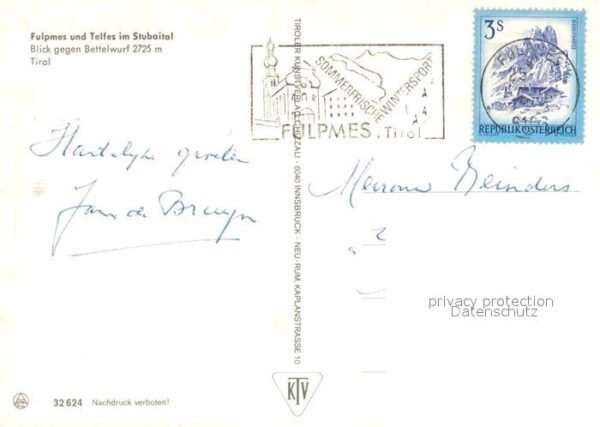 Fulpmes und Telfes im Stubaital
Blick gegen Bettelwurf 2725 m
Tirol
SOMMERFRISCHE
WINTERSPORT
FULPMES, Tirol
3S
FULPMES
REPUBLIK ÖSTERREICH
Hartelijke groeten
Jan de Bruyn
TIROLER KUNSTVERLAG CHIZZALI · 6040 INNSBRUCK - NEU-RUM, KAPLANSTRASSE 10
Mevrouw Reinders
privacy protection
Datenschutz
KTV
32 624 Nachdruck verboten!